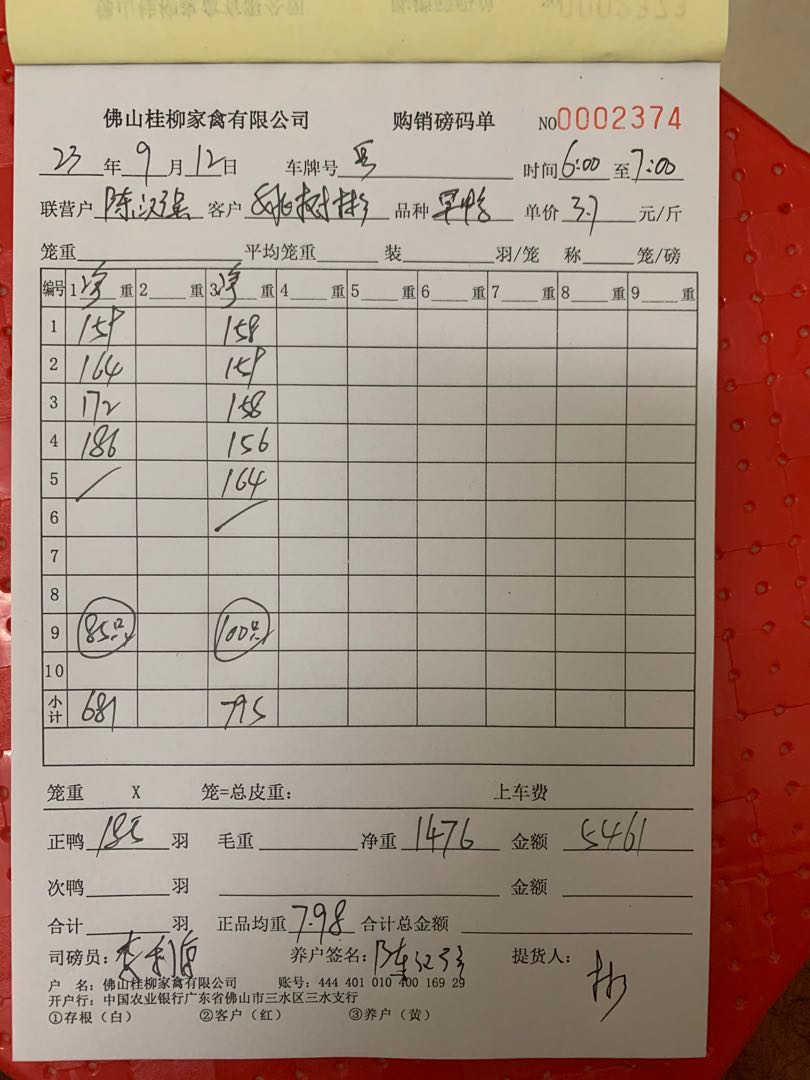 佛山桂柳家禽有限公司 购销磅码单 NO0002374
23年9月12日 车牌号 时间6:00至7:00
联营户 陈汉强 客户 姚树彬 品种 单价3.7元/斤
笼重 平均笼重 装 羽/笼 称 笼/磅
编号 1净重 2 重 3净重 4 重 5 重 6 重 7 重 8 重 9 重
1 159 158
2 164 159
3 172 158
4 186 156
5 / 164
6 /
7
8
9 85只 100只
10
小计 681 795
笼重 X 笼=总皮重: 上车费
正鸭185羽 毛重 净重1476 金额5461
次鸭 羽 金额
合计 羽 正品均重7.98 合计总金额
司磅员: 养户签名: 提货人: 彬
户 名: 佛山桂柳家禽有限公司 账号: 444 401 010 400 169 29
开户行: 中国农业银行广东省佛山市三水区三水支行
①存根(白) ②客户(红) ③养户(黄)